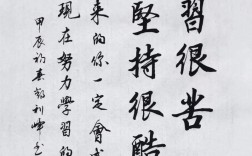 習很苦
堅持很酷
来的你一定會
現在努力學習的
甲辰初春